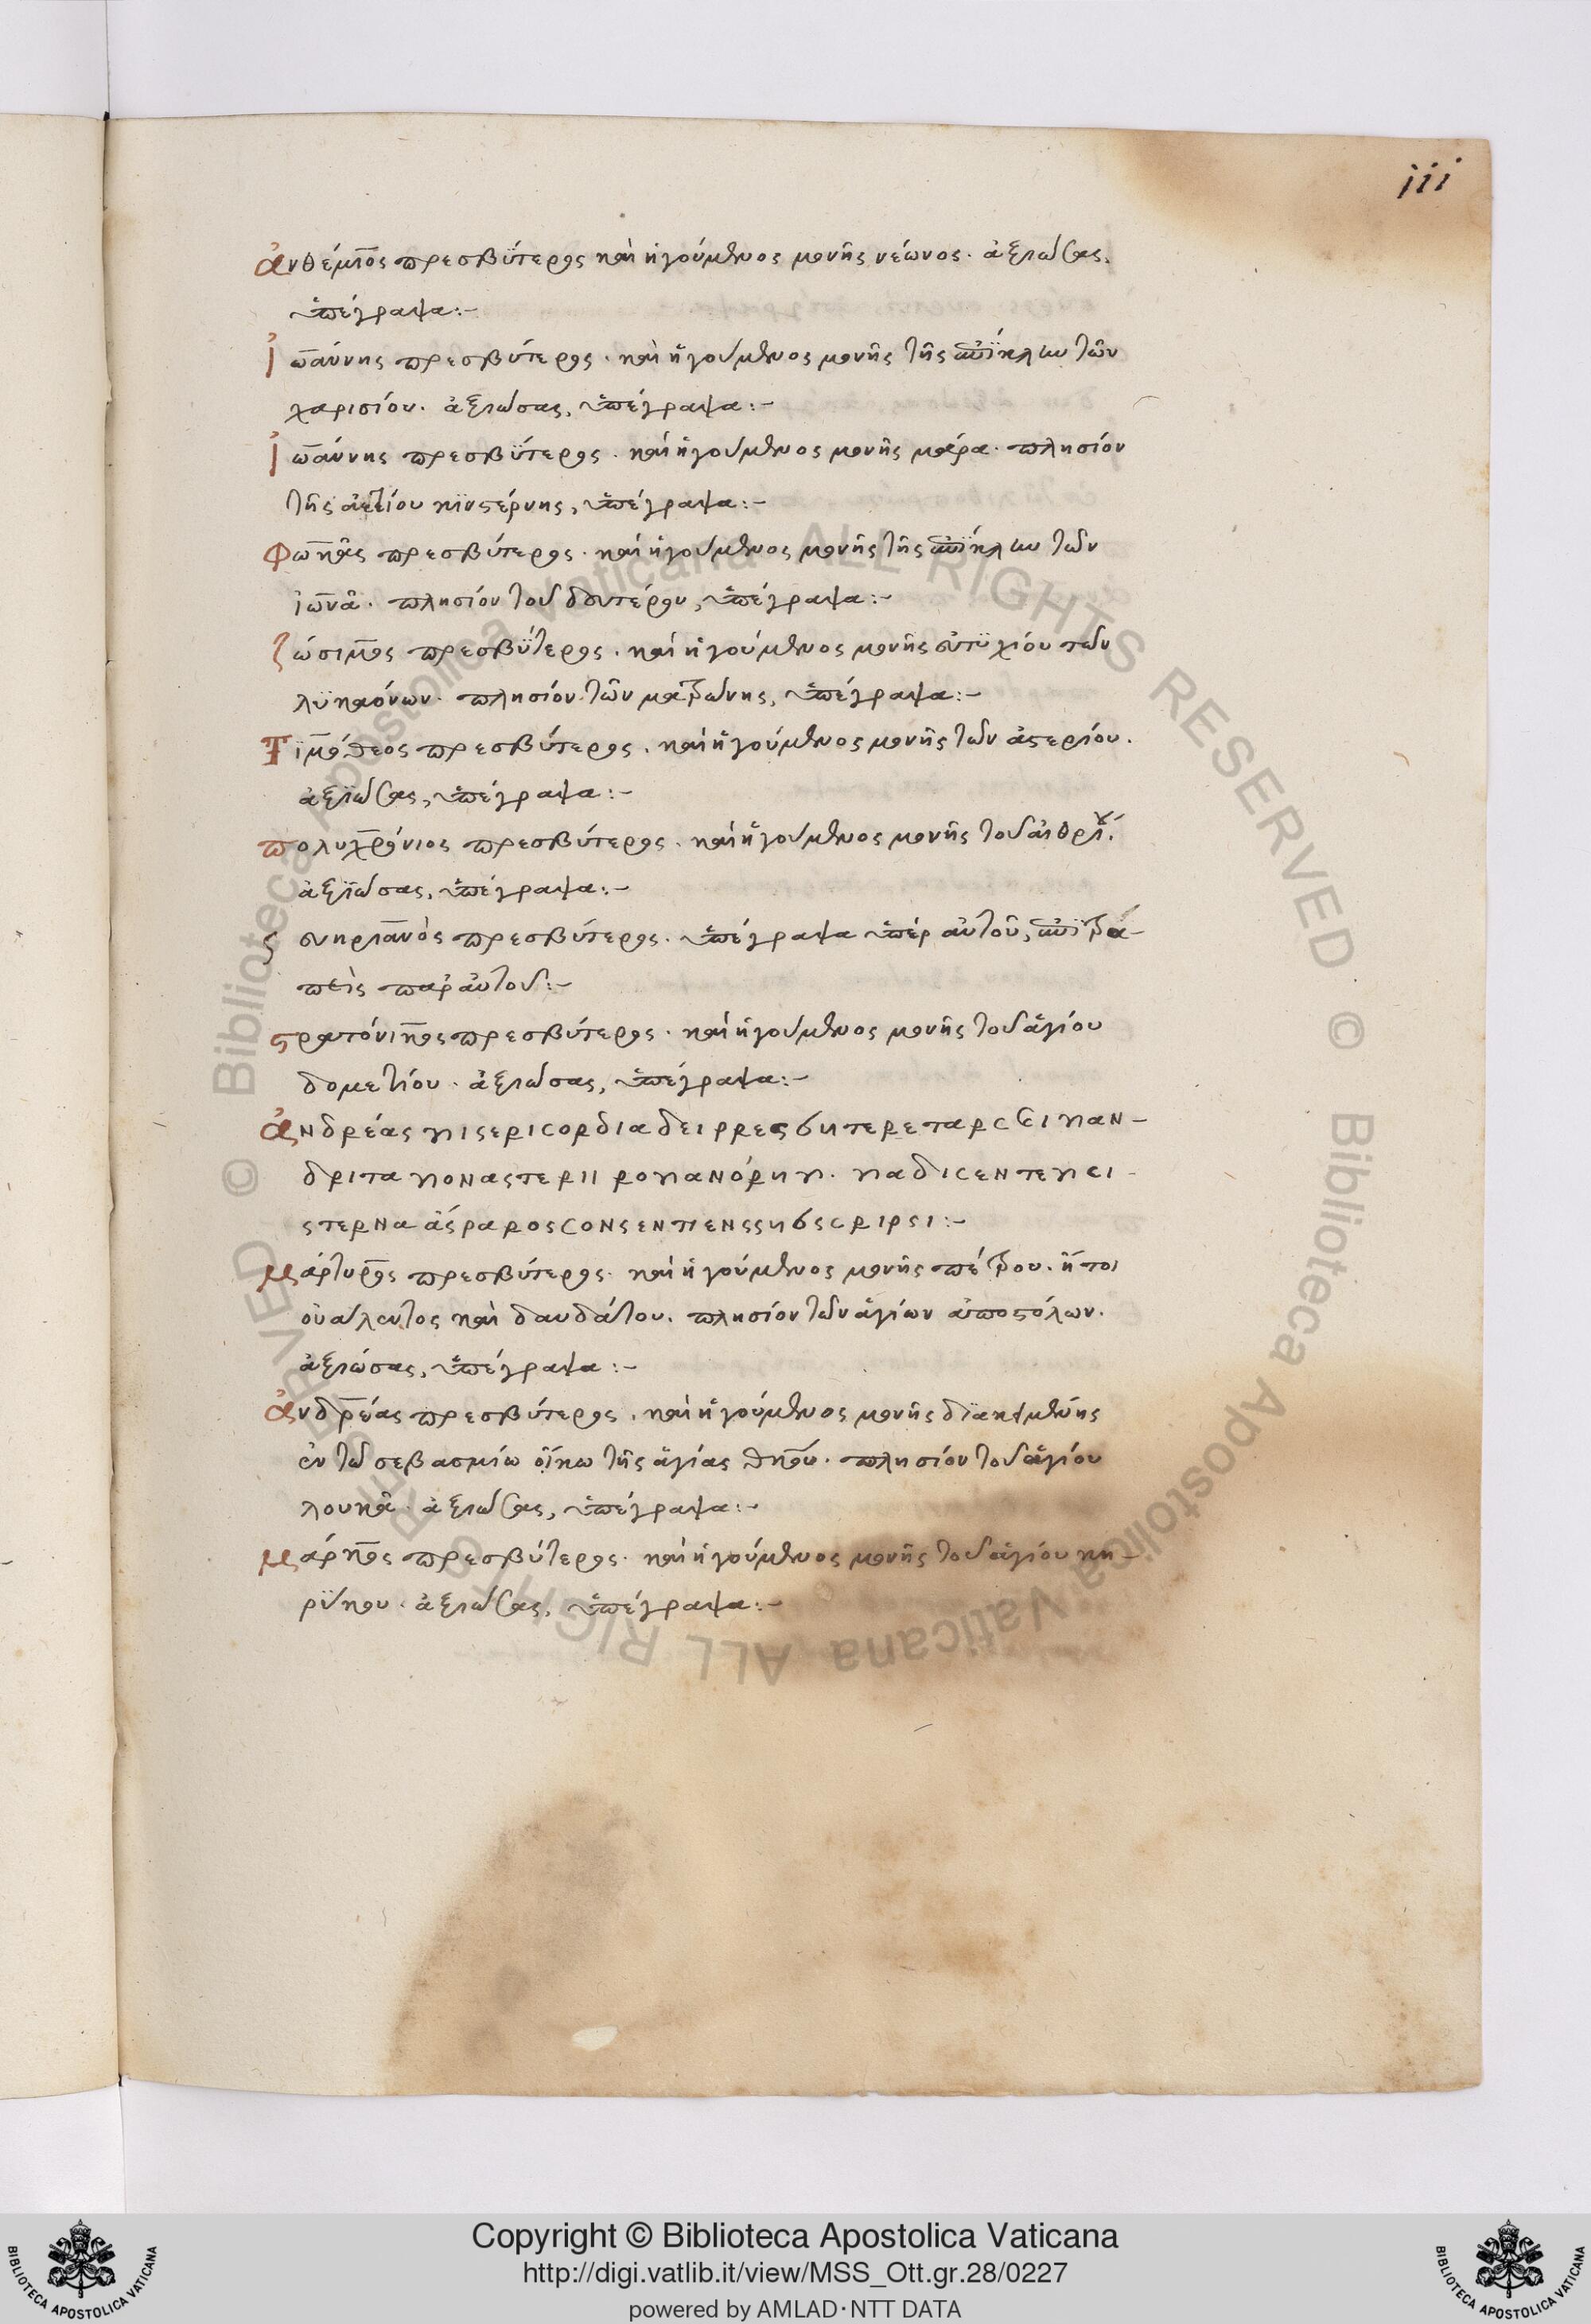 iii
ἀνθέμιος πρεσβΰτερος καὶ ἡγούμενος μονῆς νέωνος· ἀξιώσας,
ὑπέγραψα:-
Ἰωάννης πρεσβύτερος· καὶ ἡγούμενος μονῆς τῆς ἐπίκλην τῶν
χαρισίου· ἀξιώσας, ὑπέγραψα:-
Ἰωάννης πρεσβΰτερος· καὶ ἡγούμενος μονῆς μάρα· πλησίον
τῆς ἀετίου κϊνστέρνης, ὑπέγραψα:-
φωκᾶς πρεσβύτερος· καὶ ἡγούμενος μονῆς τῆς ἐπίκλην τῶν
ἰωνᾶ· πλησίον τοῦ δευτέρου, ὑπέγραψα:-
ζώσιμος πρεσβΰτερος· καὶ ἡγούμενος μονῆς εὐτϋχίου τῶν
λϋκαόνων· πλησίον τῶν ματρώνης, ὑπέγραψα:-
Τϊμόθεος πρεσβύτερος· καὶ ἡγούμενος μονῆς τῶν ἀστερίου·
ἀξιώσας, ὑπέγραψα:-
πολυχρόνιος πρεσβύτερος· καὶ ἡγούμενος μονῆς τοῦ αἰθρίου·
ἀξιώσας, ὑπέγραψα:-
σευηριανὸς πρεσβύτερος· ὑπέγραψα ὑπὲρ αὐτοῦ, ἐπιτρα-
πεὶς παρ' αὐτοῦ:-
στρατόνικος πρεσβύτερος· καὶ ἡγούμενος μονῆς τοῦ ἁγίου
δομετίου· ἀξιώσας, ὑπέγραψα:-
ἀνδρέας misericordia dei presbuter et archiman-
drita monasterii romanórum· madicentem ci-
sterna ásparos consentiens subscripsi:-
μάρτυρος πρεσβύτερος· καὶ ἡγούμενος μονῆς πέτρου· ἤτοι
οὐάλεντος καὶ δαυδάτου· πλησίον τῶν ἁγίων ἀποστόλων·
ἀξιώσας, ὑπέγραψα:-
ἀνδρέας πρεσβύτερος· καὶ ἡγούμενος μονῆς δϊακειμένης
ἐν τῶ σεβασμίω οἴκω τῆς ἁγίας θηκου· πλησίον τοῦ ἁγίου
λουκᾶ· ἀξιώσας, ὑπέγραψα:-
μάρκος πρεσβύτερος· καὶ ἡγούμενος μονῆς τοῦ ἁγίου κη-
ρΰκου· ἀξιώσας, ὑπέγραψα:-
© Biblioteca Apostolica Vaticana ALL RIGHTS RESERVED © Biblioteca Apostolica Vaticana ALL RIGHTS RESERVED
Copyright © Biblioteca Apostolica Vaticana
http://digi.vatlib.it/view/MSS_Ott.gr.28/0227
powered by AMLAD·NTT DATA
BIBLIOTECA APOSTOLICA VATICANA
BIBLIOTECA APOSTOLICA VATICANA